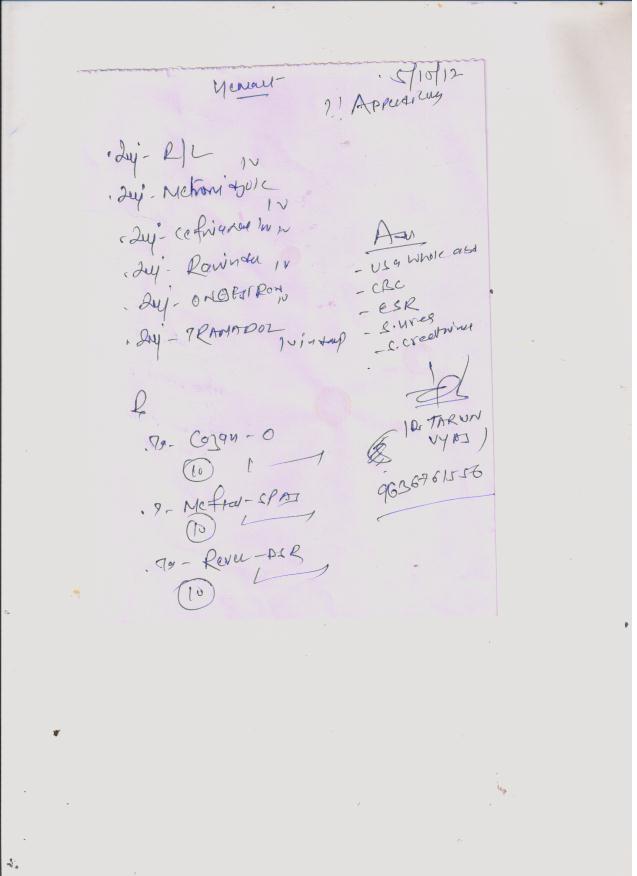 5/10/12
?! Appendicitis
Inj- R/L IV
Inj- Metronidazole IV
Inj- Ceftriaxone IV
Inj- IV
Inj- IV
Inj- TRAMADOL IV in drip
Adv
- USG Whole abd
- CBC
- ESR
- S. Urea
- S. Creatinine
R
Tab- - O
10 1
T- Meftal-SPAS
10
Tab- -DSR
10
(Dr TARUN
VYAS)
9636761556